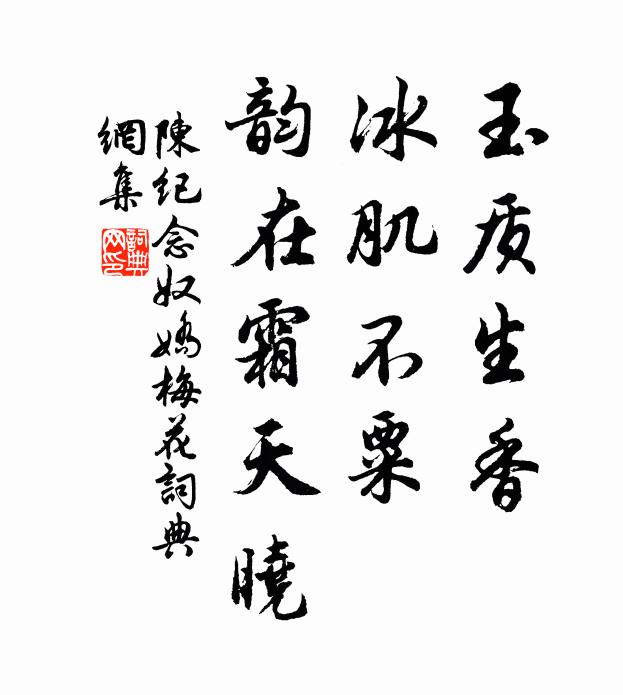 玉质生香
冰肌不粟
韵在霜天晓
陳纪念奴嬌梅花詞典
網集
詞典網印